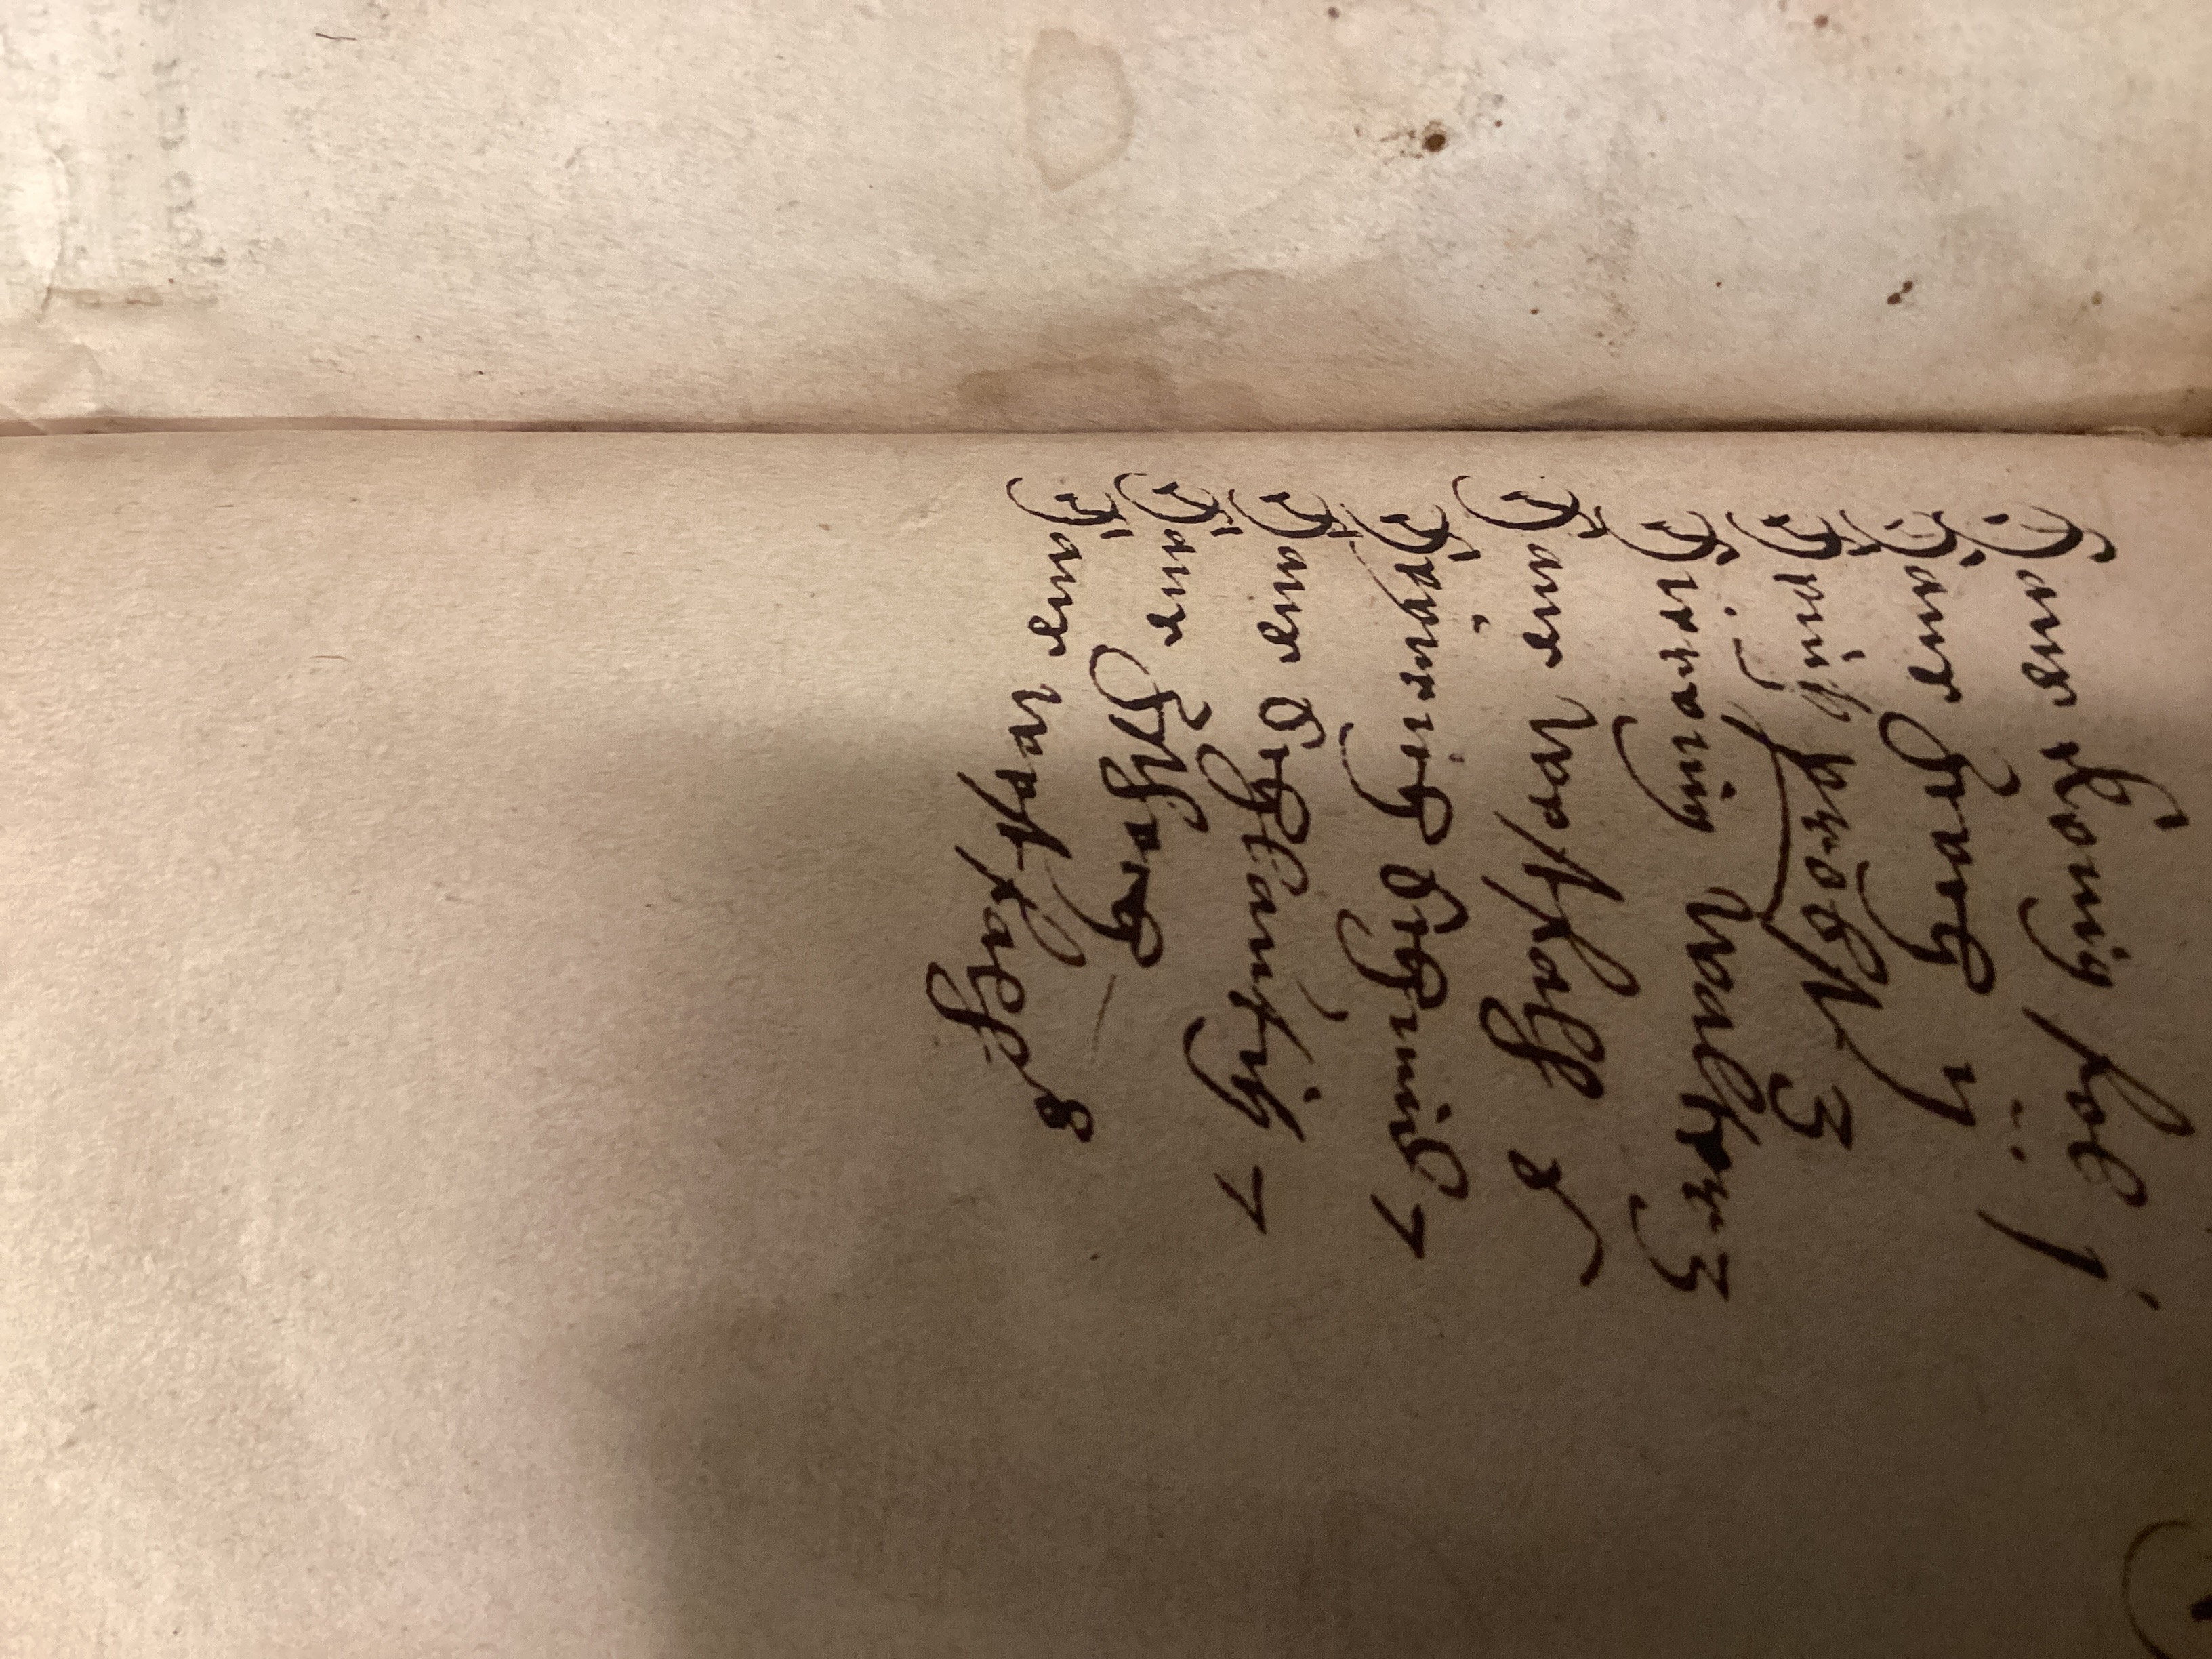 Hans konig fol j
Hans Zcech ij
Heintz probst 3
Hieronig Walter 3
Hans Westfalh 6
Heynrich Schmid 7
Hans Schlautitz 7
Hans Zschech
Hans westfalh 8